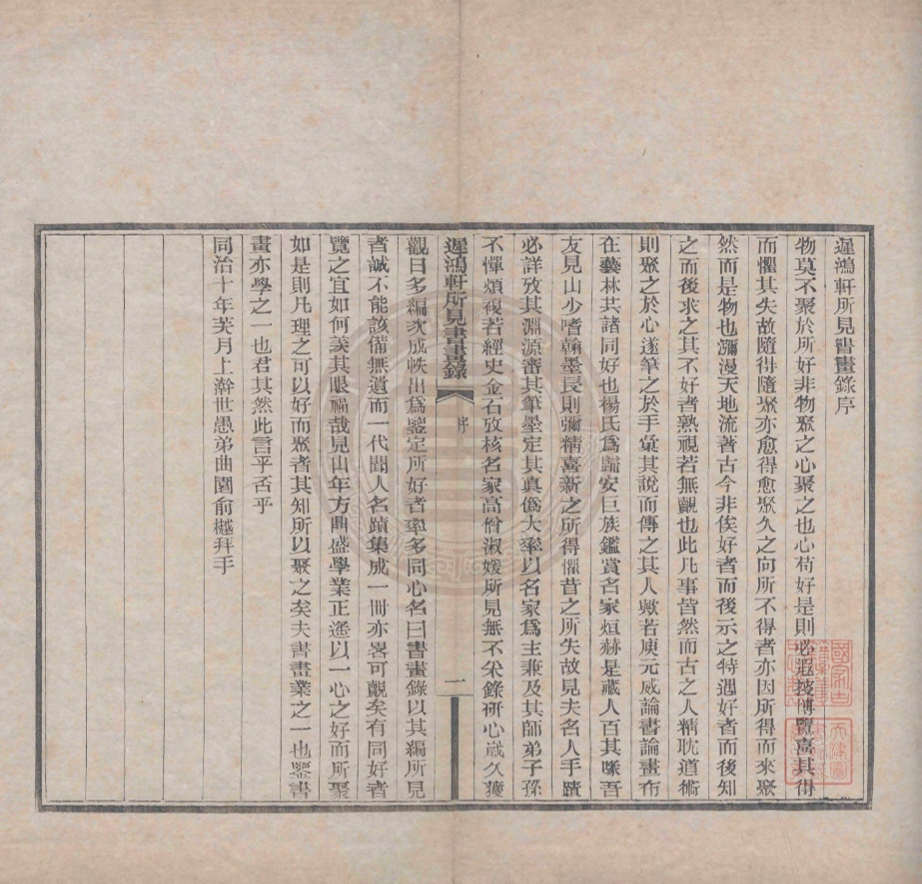 遲鴻軒所見書畫錄序
物莫不聚於所好非物聚之心聚之也心苟好是則必遐搜博覽喜其得
而懼其失故隨得隨聚亦愈得愈聚久之向所不得者亦因所得而來聚
然而是物也瀰漫天地流著古今非俟好者而後示之特遇好者而後知
之而後求之其不好者熟視若無覩也此凡事皆然而古之人精耽道術
則聚之於心遂筆之於手彙其說而傳之其人歟若庾元威論書論畫布
在藝林共諸同好也楊氏爲歸安巨族鑑賞名家烜赫是藏人百其喙吾
友見山少嗜翰墨長則彌精喜新之所得懼昔之所失故見夫名人手蹟
必詳攷其淵源審其筆墨定其真僞大率以名家爲主兼及其師弟子孫
不憚煩複若經史金石攷核名家高僧淑媛所見無不采錄研心歲久獲
遲鴻軒所見書畫錄 序 一
觀日多編次成帙出爲鑒定所好者率多同心名曰書畫錄以其編所見
者誠不能該備無遺而一代聞人名蹟集成一冊亦畧可觀矣有同好者
覽之宜如何羨其眼福哉見山年方鼎盛學業正遙以一心之好而所聚
如是則凡理之可以好而聚者其知所以聚之矣夫書畫業之一也鑒書
畫亦學之一也君其然此言乎否乎
同治十年芙月上澣世愚弟曲園俞樾拜手